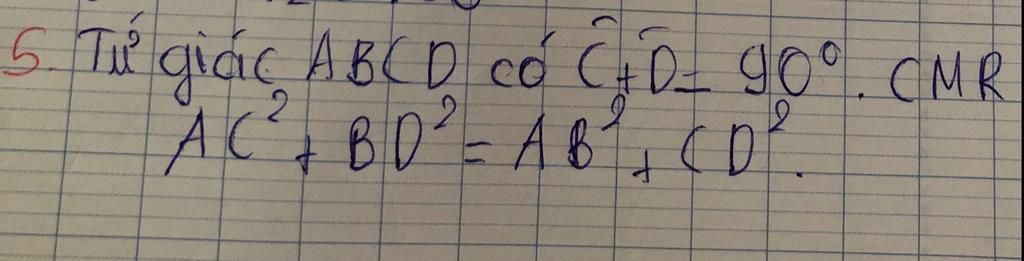 5. Tứ giác ABCD có Ĉ + D̂ = 90°. CMR
AC² + BD² = AB² + CD².